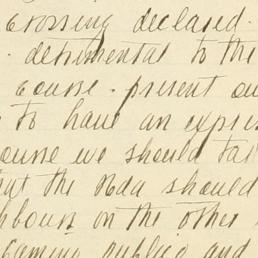 crossing declared
detrimental to the
course. present ou
to have an expres
ourse we should ta
ut the Rda should
hbours on the other
Gaming public and